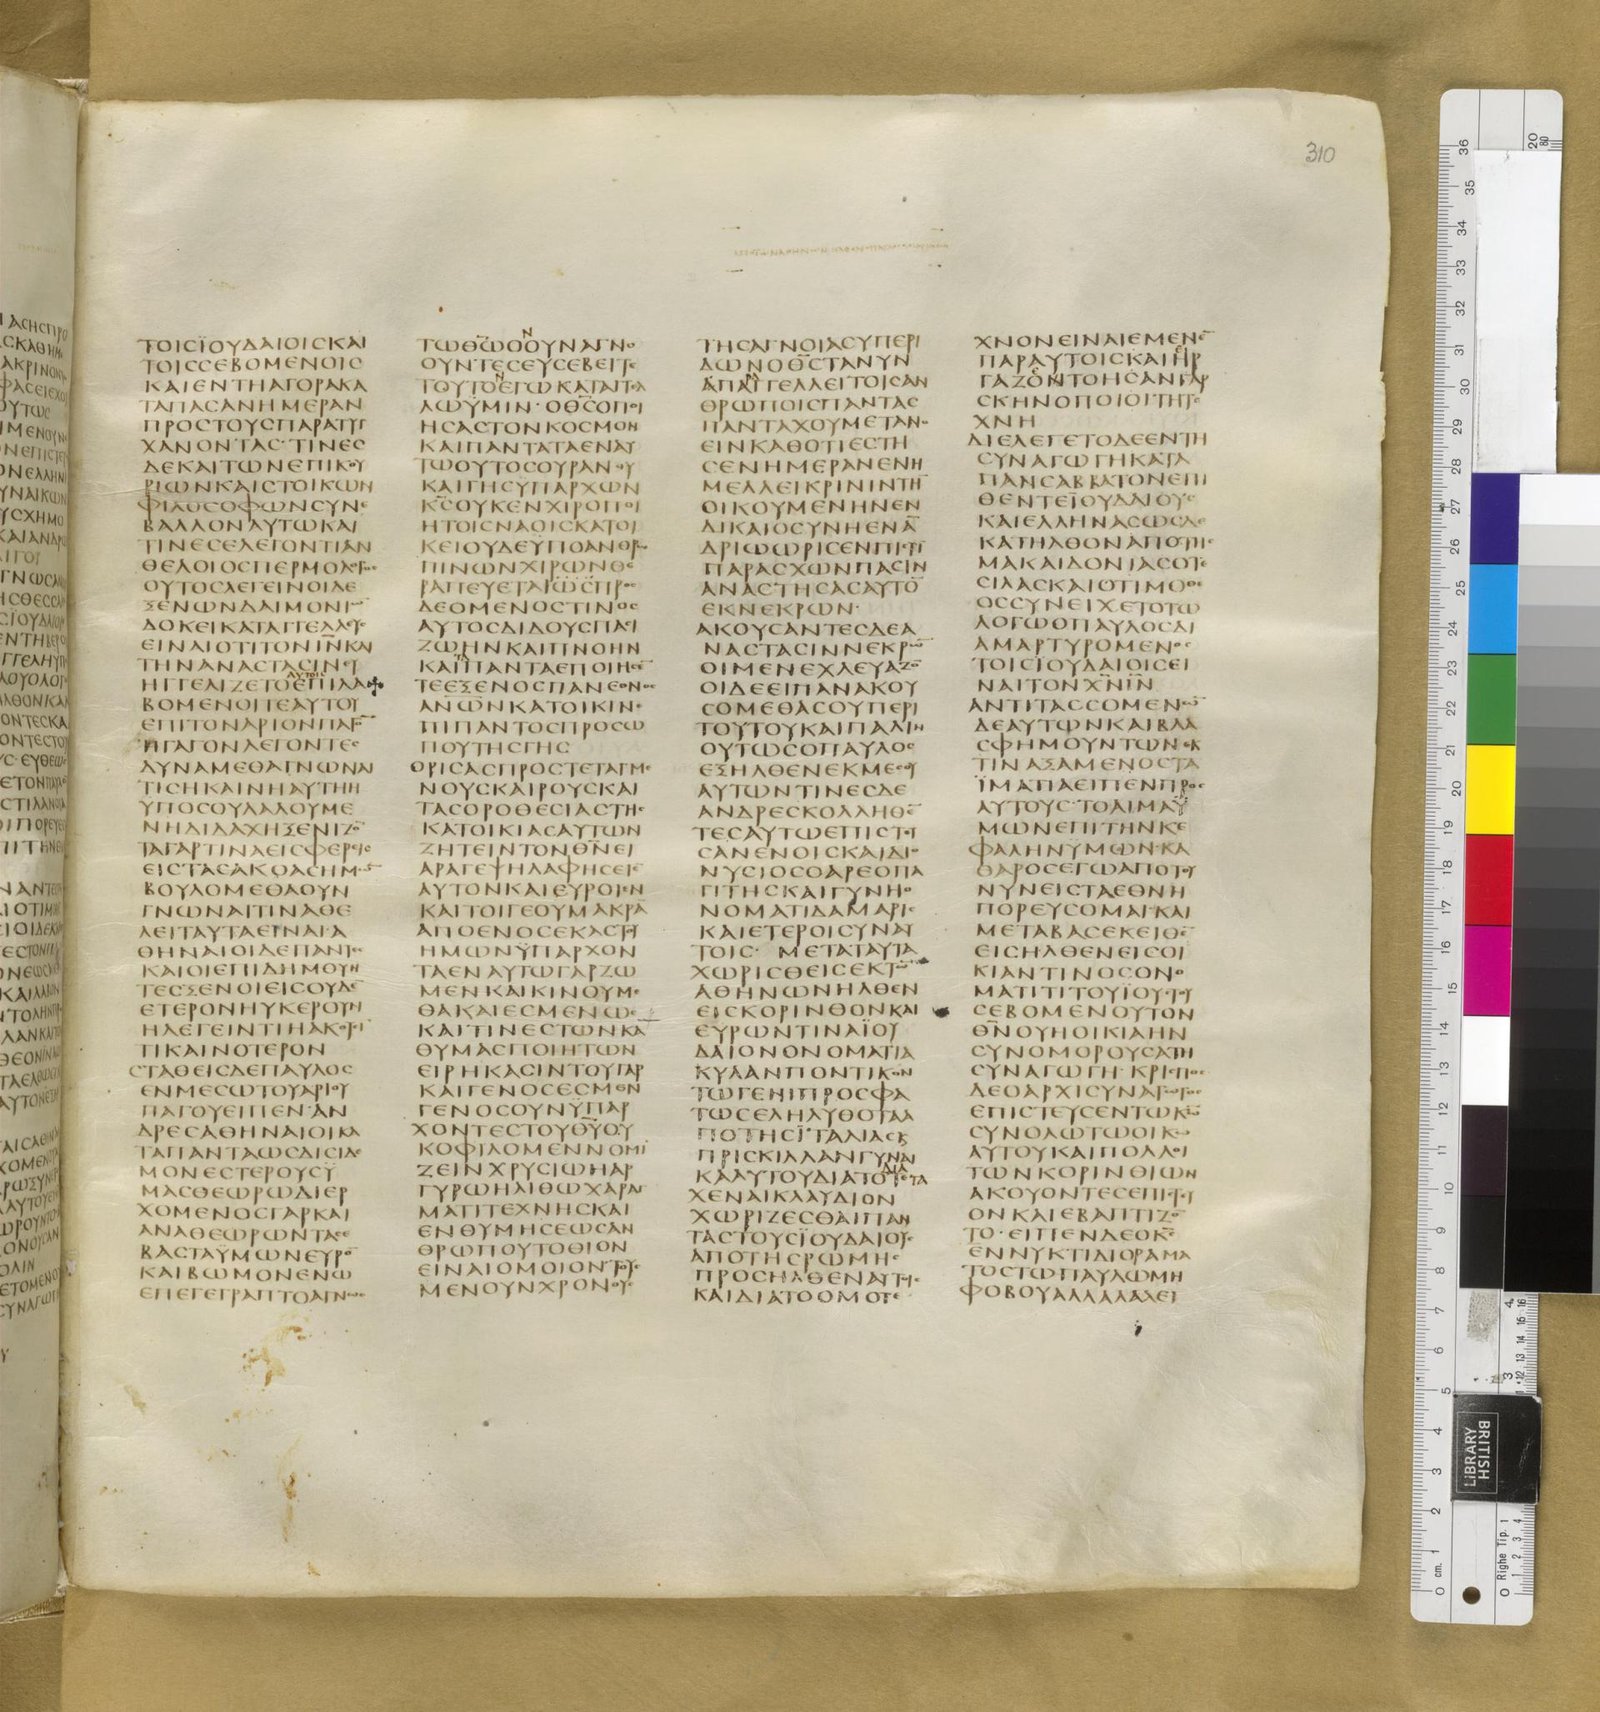 310
ΤΟΙϹΪΟΥΔΑΙΟΙϹΚΑΙ
ΤΟΙϹϹΕΒΟΜΕΝΟΙϹ
ΚΑΙΕΝΤΗΑΓΟΡΑΚΑ
ΤΑΠΑϹΑΝΗΜΕΡΑΝ
ΠΡΟϹΤΟΥϹΠΑΡΑΤΥΓ
ΧΑΝΟΝΤΑϹ·ΤΙΝΕϹ
ΔΕΚΑΙΤΩΝΕΠΙΚΟΥ
ΡΙΩΝΚΑΙϹΤΟΙΚΩΝ
ΦΙΛΟϹΟΦΩΝϹΥΝΕ
ΒΑΛΛΟΝΑΥΤΩΚΑΙ
ΤΙΝΕϹΕΛΕΓΟΝΤΙΑΝ
ΘΕΛΟΙΟϹΠΕΡΜΟΛΟΓΟϹ
ΟΥΤΟϹΛΕΓΕΙΝΟΙΔΕ
ΞΕΝΩΝΔΑΙΜΟΝΙΩ̅
ΔΟΚΕΙΚΑΤΑΓΓΕΛΕΥϹ
ΕΙΝΑΙΟΤΙΤΟΝΙ̅Ν̅ΚΑΙ
ΤΗΝΑΝΑΣΤΑϹΙΝΕΥ
ΑΥΤΟΙϹ
ΗΓΓΕΛΙΖΕΤΟΕΠΙΛΑ
ΒΟΜΕΝΟΙΤΕΑΥΤΟΥ
ΕΠΙΤΟΝΑΡΙΟΝΠΑΓΟ̅
ΗΓΑΓΟΝΛΕΓΟΝΤΕϹ
ΔΥΝΑΜΕΘΑΓΝΩΝΑΙ
ΤΙϹΗΚΑΙΝΗΑΥΤΗΗ
ΥΠΟϹΟΥΛΑΛΟΥΜΕ
ΝΗΔΙΔΑΧΗΞΕΝΙΖΟ̅
ΤΑΓΑΡΤΙΝΑΕΙϹΦΕΡΕΙϹ
ΕΙϹΤΑϹΑΚΟΑϹΗΜΩ̅
ΒΟΥΛΟΜΕΘΑΟΥΝ
ΓΝΩΝΑΙΤΙΝΑΘΕ
ΛΕΙΤΑΥΤΑΕΙΝΑΙ·Α
ΘΗΝΑΙΟΙΔΕΠΑΝΤΕϹ
ΚΑΙΟΙΕΠΙΔΗΜΟΥΝ
ΤΕϹΞΕΝΟΙΕΙϹΟΥΔΕ̅
ΕΤΕΡΟΝΗΥΚΕΡΟΥΝ
ΗΛΕΓΕΙΝΤΙΗΑΚΟΥΕΙ̅
ΤΙΚΑΙΝΟΤΕΡΟΝ
ϹΤΑΘΕΙϹΔΕΠΑΥΛΟϹ
ΕΝΜΕϹΩΤΟΥΑΡΙΟΥ
ΠΑΓΟΥΕΙΠΕΝ·ΑΝ
ΔΡΕϹΑΘΗΝΑΙΟΙΚΑ
ΤΑΠΑΝΤΑΩϹΔΙϹΙΔΕ
ΜΟΝΕϹΤΕΡΟΥϹΥ
ΜΑϹΘΕΩΡΩΔΙΕΡ
ΧΟΜΕΝΟϹΓΑΡΚΑΙ
ΑΝΑΘΕΩΡΩΝΤΑϹΕ
ΒΑϹΤΑΫΜΩΝΕΥΡΟ̅
ΚΑΙΒΩΜΟΝΕΝΩ
ΕΠΕΓΕΓΡΑΠΤΟΑΓΝΩϹ
ΤΩΘ̅Ω̅ΟΟΥΝΑΓΝΟ
ΟΥΝΤΕϹΕΥϹΕΒΕΙΤΕ
ΤΟΥΤΟΕΓΩΚΑΤΑΓΓΕΛ
ΛΩΫΜΙΝ·ΟΘ̅Ϲ̅ΟΠΟΙ
ΗϹΑϹΤΟΝΚΟϹΜΟΝ
ΚΑΙΠΑΝΤΑΤΑΕΝΑΥ
ΤΩΟΥΤΟϹΟΥΡΑΝΟΥ
ΚΑΙΓΗϹΫΠΑΡΧΩΝ
Κ̅Ϲ̅ΟΥΚΕΝΧΙΡΟΠΟΙ
ΗΤΟΙϹΝΑΟΙϹΚΑΤΟΙ
ΚΕΙΟΥΔΕΫΠΟΑΝΘΡΩ
ΠΙΝΩΝΧΙΡΩΝΘΕ
ΡΑΠΕΥΕΤΑΙΩϹΠΡΟϹ
ΔΕΟΜΕΝΟϹΤΙΝΟϹ
ΑΥΤΟϹΔΙΔΟΥϹΠΑϹΙ
ΖΩΗΝΚΑΙΠΝΟΗΝ
ΚΑΙΠΑΝΤΑΕΠΟΙΗϹΕ̅
ΤΕΕΞΕΝΟϹΠΑΝΕΘΝΟϹ
ΑΝΩΝΚΑΤΟΙΚΙΝΕ
ΠΙΠΑΝΤΟϹΠΡΟϹΩ
ΠΟΥΤΗϹΓΗϹ
ΟΡΙϹΑϹΠΡΟϹΤΕΤΑΓΜΕ
ΝΟΥϹΚΑΙΡΟΥϹΚΑΙ
ΤΑϹΟΡΟΘΕϹΙΑϹΤΗϹ
ΚΑΤΟΙΚΙΑϹΑΥΤΩΝ
ΖΗΤΕΙΝΤΟΝΘ̅Ν̅ΕΙ
ΑΡΑΓΕΨΗΛΑΦΗϹΕΙΕ̅
ΑΥΤΟΝΚΑΙΕΥΡΟΙΕΝ
ΚΑΙΤΟΙΓΕΟΥΜΑΚΡΑ̅
ΑΠΟΕΝΟϹΕΚΑϹΤΟΥ
ΗΜΩΝΫΠΑΡΧΟΝ
ΤΑΕΝΑΥΤΩΓΑΡΖΩ
ΜΕΝΚΑΙΚΙΝΟΥΜΕ
ΘΑΚΑΙΕϹΜΕΝΩϹ
ΚΑΙΤΙΝΕϹΤΩΝΚΑ
ΘΥΜΑϹΠΟΙΗΤΩΝ
ΕΙΡΗΚΑϹΙΝΤΟΥΓΑΡ
ΚΑΙΓΕΝΟϹΕϹΜΕΝ
ΓΕΝΟϹΟΥΝΫΠΑΡ
ΧΟΝΤΕϹΤΟΥΘ̅Υ̅ΟΥ
ΚΟΦΙΛΟΜΕΝΝΟΜΙ
ΖΕΙΝΧΡΥϹΙΩΗΑΡ
ΓΥΡΩΗΛΙΘΩΧΑΡΑΓ
ΜΑΤΙΤΕΧΝΗϹΚΑΙ
ΕΝΘΥΜΗϹΕΩϹΑΝ
ΘΡΩΠΟΥΤΟΘΙΟΝ
ΕΙΝΑΙΟΜΟΙΟΝΤΟΥϹ
ΜΕΝΟΥΝΧΡΟΝΟΥϹ
ΤΗϹΑΓΝΟΙΑϹΥΠΕΡΙ
ΔΩΝΟΘ̅Ϲ̅ΤΑΝΥΝ
ΑΠΑΓΓΕΛΛΕΙΤΟΙϹΑΝ
ΘΡΩΠΟΙϹΠΑΝΤΑϹ
ΠΑΝΤΑΧΟΥΜΕΤΑΝΟ
ΕΙΝΚΑΘΟΤΙΕϹΤΗ
ϹΕΝΗΜΕΡΑΝΕΝΗ
ΜΕΛΛΕΙΚΡΙΝΙΝΤΗ̅
ΟΙΚΟΥΜΕΝΗΝΕΝ
ΔΙΚΑΙΟϹΥΝΗΕΝΑ̅
ΔΡΙΩΩΡΙϹΕΝΠΙϹΤΙ̅
ΠΑΡΑϹΧΩΝΠΑϹΙΝ
ΑΝΑϹΤΗϹΑϹΑΥΤΟ̅
ΕΚΝΕΚΡΩΝ·
ΑΚΟΥϹΑΝΤΕϹΔΕΑ
ΝΑϹΤΑϹΙΝΝΕΚΡΩ̅
ΟΙΜΕΝΕΧΛΕΥΑΖΟ̅
ΟΙΔΕΕΙΠΑΝΑΚΟΥ
ϹΟΜΕΘΑϹΟΥΠΕΡΙ
ΤΟΥΤΟΥΚΑΙΠΑΛΙΝ
ΟΥΤΩϹΟΠΑΥΛΟϹ
ΕΞΗΛΘΕΝΕΚΜΕϹΟΥ
ΑΥΤΩΝΤΙΝΕϹΔΕ
ΑΝΔΡΕϹΚΟΛΛΗΘΕ̅
ΤΕϹΑΥΤΩΕΠΙϹΤΕΥ
ϹΑΝΕΝΟΙϹΚΑΙΔΙΟ
ΝΥϹΙΟϹΟΑΡΕΟΠΑ
ΓΙΤΗϹΚΑΙΓΥΝΗΟ
ΝΟΜΑΤΙΔΑΜΑΡΙϹ
ΚΑΙΕΤΕΡΟΙϹΥΝΑΥ
ΤΟΙϹ· ΜΕΤΑΤΑΥΤΑ
ΧΩΡΙϹΘΕΙϹΕΚΤΩ̅
ΑΘΗΝΩΝΗΛΘΕΝ
ΕΙϹΚΟΡΙΝΘΟΝΚΑΙ
ΕΥΡΩΝΤΙΝΑΪΟΥ
ΔΑΙΟΝΟΝΟΜΑΤΙΑ
ΚΥΛΑΝΠΟΝΤΙΚΟΝ
ΤΩΓΕΝΙΠΡΟϹΦΑ
ΤΩϹΕΛΗΛΥΘΟΤΑΑ
ΠΟΤΗϹΪΤΑΛΙΑϹΚ
ΠΡΙϹΚΙΛΛΑΝΓΥΝΑΙ
ΔΙΑ
ΚΑΑΥΤΟΥΔΙΑΤΟΤΕΤΑ
ΧΕΝΑΙΚΛΑΥΔΙΟΝ
ΧΩΡΙΖΕϹΘΑΙΠΑΝ
ΤΑϹΤΟΥϹΪΟΥΔΑΙΟΥϹ
ΑΠΟΤΗϹΡΩΜΗϹ
ΠΡΟϹΗΛΘΕΝΑΥΤΟΙϹ
ΚΑΙΔΙΑΤΟΟΜΟΤΕ
ΧΝΟΝΕΙΝΑΙΕΜΕΝΕ̅
ΠΑΡΑΥΤΟΙϹΚΑΙΗΡ
ΓΑΖΟΝΤΟΗϹΑΝΓΑΡ
ϹΚΗΝΟΠΟΙΟΙΤΗΤΕ
ΧΝΗ
ΔΙΕΛΕΓΕΤΟΔΕΕΝΤΗ
ϹΥΝΑΓΩΓΗΚΑΤΑ
ΠΑΝϹΑΒΒΑΤΟΝΕΠΙ
ΘΕΝΤΕΪΟΥΔΑΙΟΥϹ
ΚΑΙΕΛΛΗΝΑϹΩϹΔΕ
ΚΑΤΗΛΘΟΝΑΠΟΤΗϹ
ΜΑΚΑΙΔΟΝΙΑϹΟΤΕ
ϹΙΛΑϹΚΑΙΟΤΙΜΟΘΕ
ΟϹϹΥΝΕΙΧΕΤΟΤΩ
ΛΟΓΩΟΠΑΥΛΟϹΔΙ
ΑΜΑΡΤΥΡΟΜΕΝΟϹ
ΤΟΙϹΪΟΥΔΑΙΟΙϹΕΙ
ΝΑΙΤΟΝΧ̅Ν̅Ι̅Ν̅
ΑΝΤΙΤΑϹϹΟΜΕΝΩ̅
ΔΕΑΥΤΩΝΚΑΙΒΛΑ
ϹΦΗΜΟΥΝΤΩΝΕΚ
ΤΙΝΑΞΑΜΕΝΟϹΤΑ
ΪΜΑΤΙΑΕΙΠΕΝΠΡΟϹ
ΑΥΤΟΥϹ·ΤΟΑΙΜΑΫ
ΜΩΝΕΠΙΤΗΝΚΕ
ΦΑΛΗΝΥΜΩΝ·ΚΑ
ΘΑΡΟϹΕΓΩΑΠΟΤΟΥ
ΝΥΝΕΙϹΤΑΕΘΝΗ
ΠΟΡΕΥϹΟΜΑΙ·ΚΑΙ
ΜΕΤΑΒΑϹΕΚΕΙΘΕ̅
ΕΙϹΗΛΘΕΝΕΙϹΟΙ
ΚΙΑΝΤΙΝΟϹΟΝΟ
ΜΑΤΙΤΙΤΟΥΪΟΥϹΤΟΥ
ϹΕΒΟΜΕΝΟΥΤΟΝ
Θ̅Ν̅ΟΥΗΟΙΚΙΑΗΝ
ϹΥΝΟΜΟΡΟΥϹΑΤΗ
ϹΥΝΑΓΩΓΗ·ΚΡΙϹΠΟϹ
ΔΕΟΑΡΧΙϹΥΝΑΓΩΓΟϹ
ΕΠΙϹΤΕΥϹΕΝΤΩΚ̅Ω̅
ϹΥΝΟΛΩΤΩΟΙΚΩ
ΑΥΤΟΥΚΑΙΠΟΛΛΟΙ
ΤΩΝΚΟΡΙΝΘΙΩΝ
ΑΚΟΥΟΝΤΕϹΕΠΙϹΤΕΥ
ΟΝΚΑΙΕΒΑΠΤΙΖΟ̅
ΤΟ·ΕΙΠΕΝΔΕΟΚ̅Ϲ̅
ΕΝΝΥΚΤΙΔΙΟΡΑΜΑ
ΤΟϹΤΩΠΑΥΛΩΜΗ
ΦΟΒΟΥΑΛΛΑΛΑΛΕΙ
BRITISH
LIBRARY